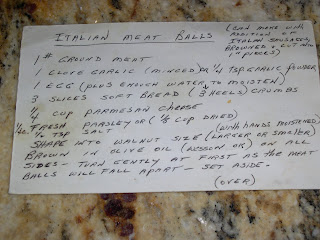 ITALIAN MEAT BALLS
(CAN MAKE WITH
ADDITION OF
ITALIAN SAUSAGES,
BROWNED & CUT INTO
1" PIECES)
1 # GROUND MEAT
1 CLOVE GARLIC (MINCED) OR 1/4 TSP GARLIC POWDER
1 EGG (PLUS ENOUGH WATER TO MOISTEN)
3 SLICES SOFT BREAD (3 HEELS) CRUMBS
1/4 CUP PARMESAN CHEESE
FRESH PARSLEY OR (1/8 CUP DRIED)
TSP SALT
(WITH HANDS MOISTENED)
SHAPE INTO WALNUT SIZE (LARGER OR SMALLER)
BROWN IN OLIVE OIL (WESSON OR) ON ALL
SIDES - TURN GENTLY AT FIRST AS THE MEAT
BALLS WILL FALL APART - SET ASIDE.
(OVER)